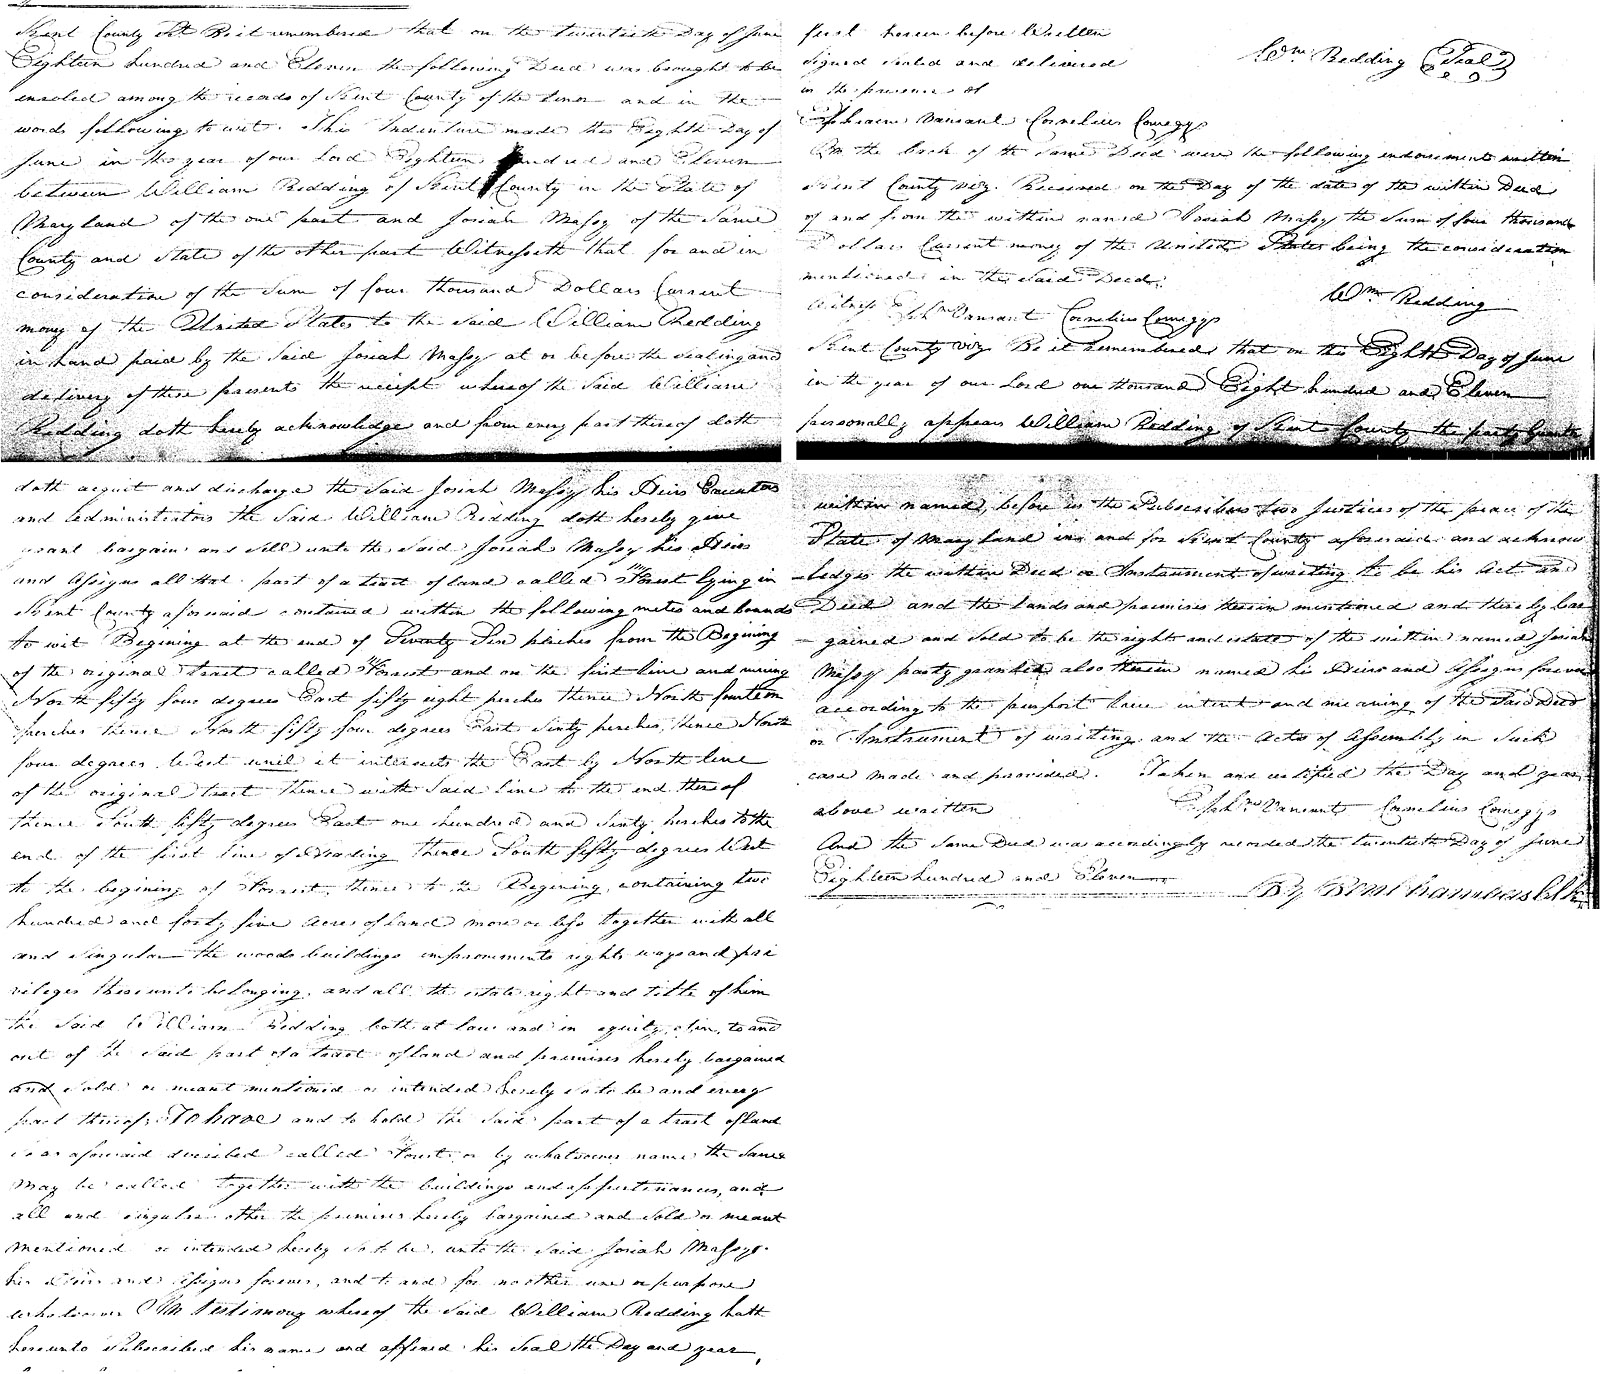 Kent County Sct Be it remembered that on the twentieth Day of June
Eighteen hundred and Eleven the following Deed was brought to be
enroled among the records of Kent County of the tenor and in the
words following to wit. This Indenture made this Eighth Day of
June in the year of our Lord Eighteen hundred and Eleven
between William Redding of Kent County in the State of
Maryland of the one part and Josiah Massy of the Same
County and State of the other part Witnesseth that for and in
consideration of the Sum of four thousand Dollars Current
money of the United States to the Said William Redding
in hand paid by the Said Josiah Massy at or before the sealing and
delivery of these presents the receipt whereof the Said William
Redding doth hereby acknowledge and from every part thereof doth
doth acquit and discharge the Said Josiah Massy his Heirs Executors
and administrators the Said William Redding doth hereby give
grant bargain and Sell unto the Said Josiah Massy his Heirs
and assigns all that part of a tract of land called Forrest lying in
Kent County aforesaid contained within the following metes and bounds
to wit Begining at the end of Seventy Six perches from the Begining
of the original tract called Forrest and on the first line and runing
North fifty four degrees East fifty eight perches thence North fourteen
perches thence North fifty four degrees East Sixty perches, thence North
four degrees West until it intersects the East by North line
of the original tract thence with Said line to the end thereof
thence South fifty degrees East one hundred and Sixty perches to the
end of the first line of thence South fifty degrees West
to the begining of Forrest, thence to the Begining, containing two
hundred and forty five acres of land more or less together with all
and Singular the woods buildings improvments rights ways and pri
vileges thereunto belonging, and all the estate right and title of him
the Said William Redding both at law and in equity, of in, to and
out of the Said part of a tract of land and premises hereby bargained
and Sold or meant mentioned or intended hereby so to be and every
part thereof: To have and to hold the Said part of a tract of land
so as aforesaid described called Forrest or by whatsoever name the Same
may be called together with the buildings and appurtenances, and
all and singular other the premises hereby bargained and Sold or meant
mentioned or intended hereby so to be, unto the Said Josiah Massy
his Heirs and assigns forever, and to and for no other use or purpose
whatsoever In testimony whereof the Said William Redding hath
hereunto Subscribed his name and affixed his Seal the Day and year
first herein before Written
Wm Redding (Seal)
Signed Sealed and delivered
in the presence of
Ephraim Vansant Cornelius Comegys
On the back of the Same Deed were the following endorsements written
Kent County viz. Received on the Day of the date of the within Deed
of and from the within named Josiah Massy the Sum of four thousand
Dollars Current money of the United States being the consideration
mentioned in the Said Deed.
Wm Redding
Witness Ephm Vansant Cornelius Comegys
Kent County viz Be it remembered that on this Eighth Day of June
in the year of our Lord one thousand Eight hundred and Eleven
personally appears William Redding of Kent County the party Grantor
within named, before us the Subscribers two Justices of the peace of the
State of Maryland in and for Kent County aforesaid and acknow
-ledges the within Deed or Instrument of writing to be his Act and
Deed and the lands and premises therein mentioned and thereby bar
-gained and Sold to be the right and estate of the within named Josiah
Massy party grantee also therein named his Heirs and Assigns forever
according to the purport true intent and meaning of the Said Deed
or Instrument of writing and the Acts of Assembly in Such
case made and provided. Taken and certified the Day and year
above written
Ephm Vansant Cornelius Comegys
And the Same Deed was accordingly recorded the twentieth Day of June
Eighteen hundred and Eleven
By Benj Chambers Clk